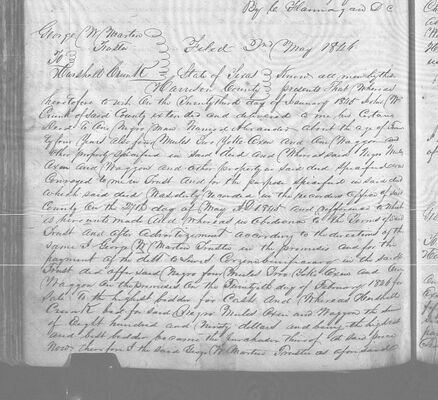 By C Flanning an D C
George W Martin
Trustee Filed 2nd May 1846
To Deed
Marshall Crunk State of Texas Know all men by these
Harrison County presents That Whereas
heretofore to wit On the Twenty third day of January 1845 John W
Crunk of Said County executed and delivered to me his Certain
Deed to One Negro Man Named Alexander about the age of Twen
ty four Years also four Mules Two Yoke Oxen and One Waggon and
other property Specified in Said deed and Whereas said Negro Mules
Oxen and Waggon and other property in said deed Specified were
Conveyed to me in Trust and for the purpose Specified in said deed
which said deed was duly recorded in the recorders office of said
County On the 27th day of May A D 1845 and reference to which
is here unto made And Whereas in Obedience to the Terms of said
Trust and after Advertizement according to the directions of the
same I George W Martin Trustee in the premises and for the
payment of the debt to the beneficiary in the said
Trust did offer said Negro four Mules Two Yoke Oxen and One
Waggon On the premises On the Twentyeth day of February 1846 for
Sale To the highest bidder for Cash And Whereas Marshall
Crunk bid for said Negro Mules Oxen and Waggon the sum
of Eight hundred and Ninety dollars and being the highest
and best bidder became the purchaser thereof at said price
Now therefore I the said George W Martin Trustee as aforesaid